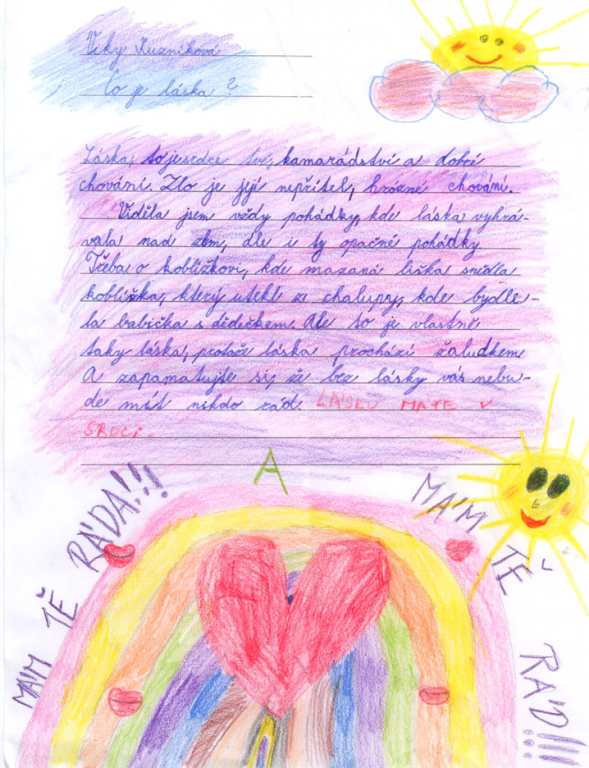 Viky Kuzníková
Co je láska?
Láska, to je srdce tvé, kamarádství a dobré
chování. Zlo je její nepřítel, hrozné chování.
Viděla jsem vždy pohádky, kde láska vyhrá-
vala nad zlem, ale i ty opačné pohádky.
Třeba o koblížkovi, kde mazaná liška snědla
koblížka, který utekl z chalupy, kde bydle-
la babička s dědečkem. Ale to je vlastně
taky láska, protože láska prochází žaludkem.
A zapamatujte si, že bez lásky vás nebu-
de mít nikdo rád. LÁSKU MÁTE V
SRDCI.
A
MÁM TĚ RÁDA!!!
MÁM TĚ RÁD!!!